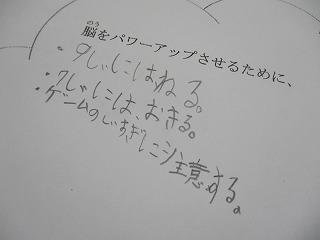 脳をパワーアップさせるために、
・9じにはねる。
・7じには、おきる。
・ゲームのしすぎに注意する。